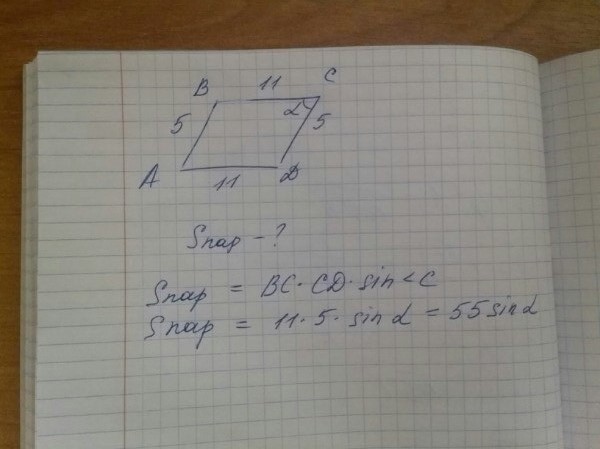 B 11 C
5 α 5
A 11 D
Sпар - ?
Sпар = BC · CD · sin <C
Sпар = 11 · 5 · sin α = 55 sin α